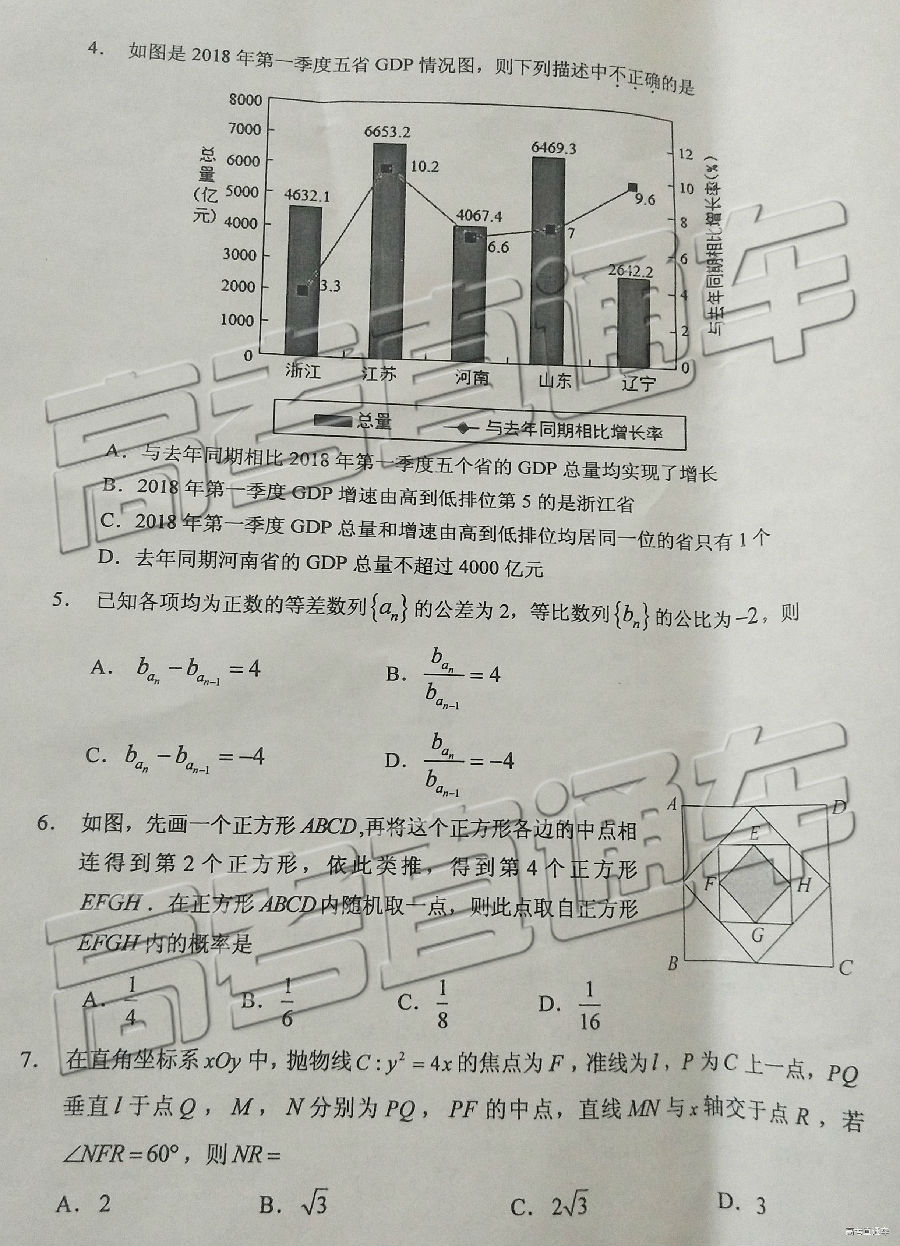 4. 如图是 2018 年第一季度五省 GDP 情况图，则下列描述中不正确的是
8000
7000
6000
5000
4000
3000
2000
1000
0
总量(亿元)
4632.1
6653.2
4067.4
6469.3
2642.2
3.3
10.2
6.6
7
9.6
12
10
8
6
4
2
0
与去年同期相比增长率(%)
浙江 江苏 河南 山东 辽宁
总量 与去年同期相比增长率
A. 与去年同期相比 2018 年第一季度五个省的 GDP 总量均实现了增长
B. 2018 年第一季度 GDP 增速由高到低排位第 5 的是浙江省
C. 2018 年第一季度 GDP 总量和增速由高到低排位均居同一位的省只有 1 个
D. 去年同期河南省的 GDP 总量不超过 4000 亿元
5. 已知各项均为正数的等差数列{a_n}的公差为 2，等比数列{b_n}的公比为 -2，则
A. b_{a_n} - b_{a_{n-1}} = 4 B. \frac{b_{a_n}}{b_{a_{n-1}}} = 4
C. b_{a_n} - b_{a_{n-1}} = -4 D. \frac{b_{a_n}}{b_{a_{n-1}}} = -4
6. 如图，先画一个正方形 ABCD,再将这个正方形各边的中点相
连得到第 2 个正方形，依此类推，得到第 4 个正方形
EFGH．在正方形 ABCD内随机取一点，则此点取自正方形
EFGH 内的概率是
A D
E
F H
G
B C
A. \frac{1}{4} B. \frac{1}{6} C. \frac{1}{8} D. \frac{1}{16}
7. 在直角坐标系 xOy 中，抛物线 C : y² = 4x 的焦点为 F，准线为 l，P 为 C 上一点，PQ
垂直 l 于点 Q，M，N 分别为 PQ，PF 的中点，直线 MN 与 x 轴交于点 R，若
∠NFR = 60°，则 NR =
A. 2 B. √3 C. 2√3 D. 3
高考直通车
高考直通车
高考直通车